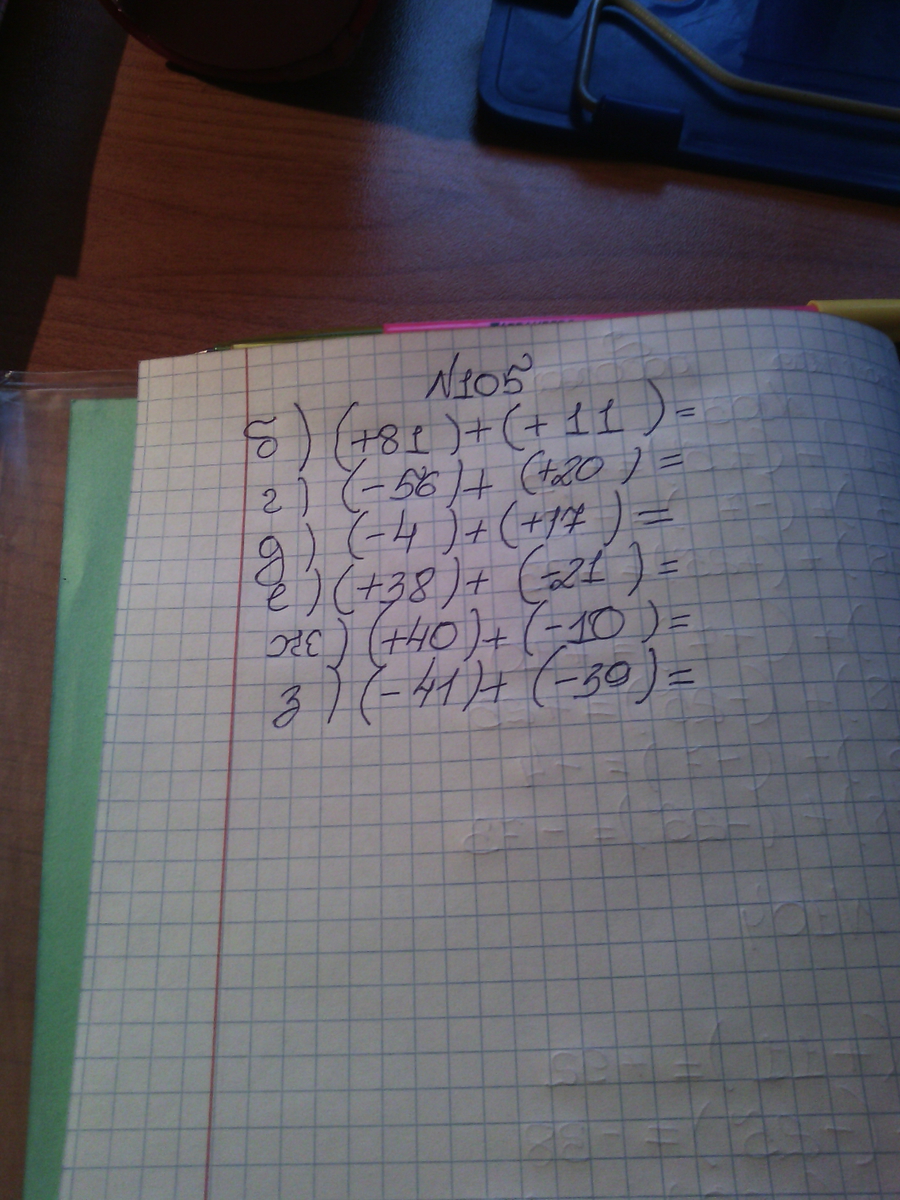 N105
б) (+81)+(+11)=
г) (-56)+(+20)=
д) (-4)+(+17)=
е) (+38)+(-21)=
ж) (+40)+(-10)=
з) (-41)+(-39)=